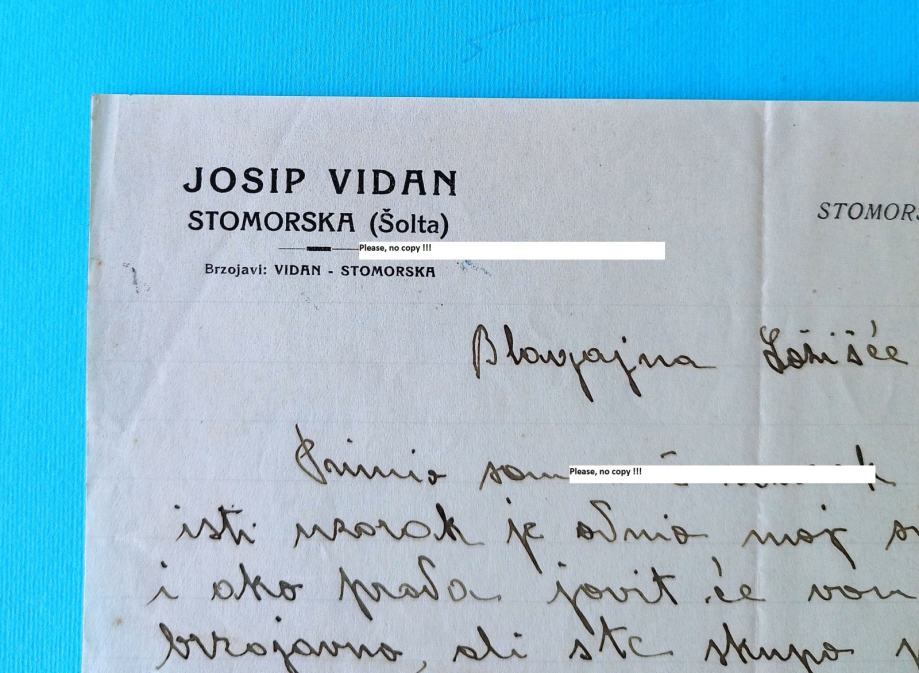 JOSIP VIDAN
STOMORSKA (Šolta)
STOMORS
Please, no copy !!!
Brzojavi: VIDAN - STOMORSKA
Blagajna Ložišće
Primio sam
Please, no copy !!!
isti uzorak je odnio moj
i ako prođa javit će vam
brzojavno, ali ste skupo